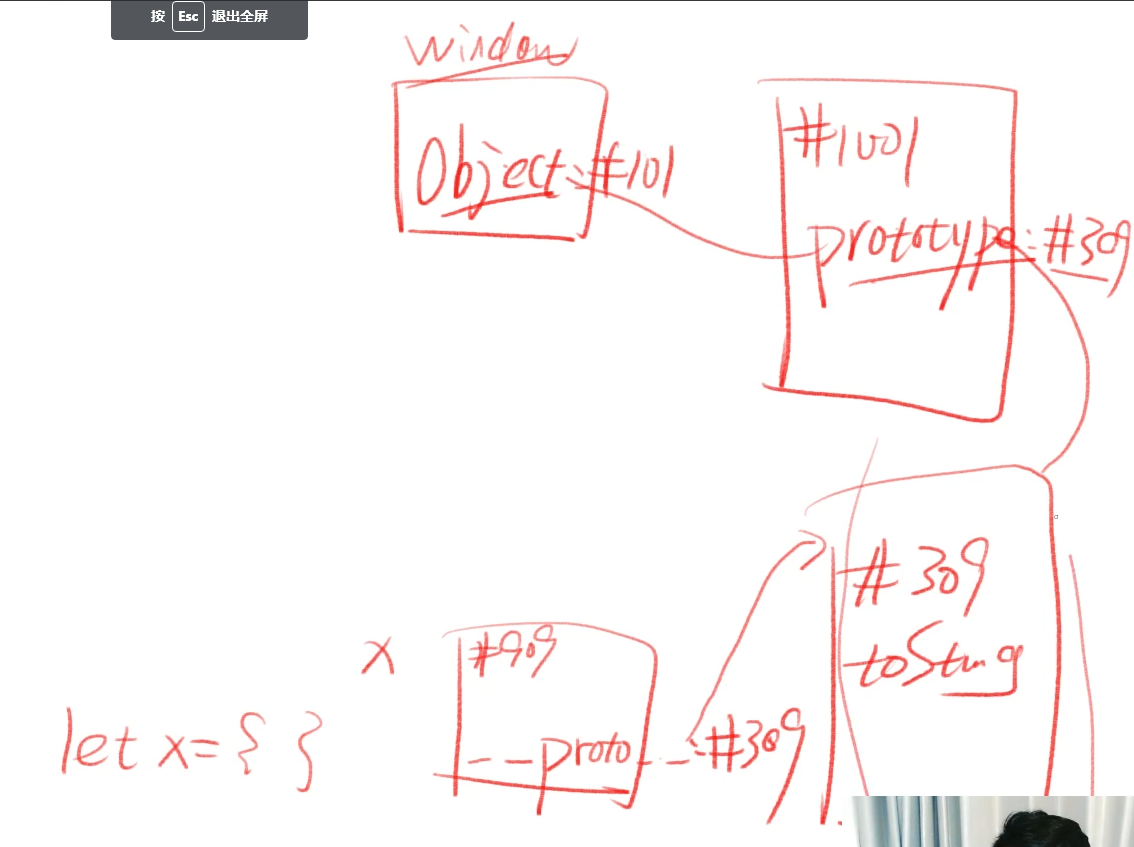 按 Esc 退出全屏
window
Object:#101
#1001
prototype:#309
#309
toString
x
#909
__proto__:#309
let x={ }